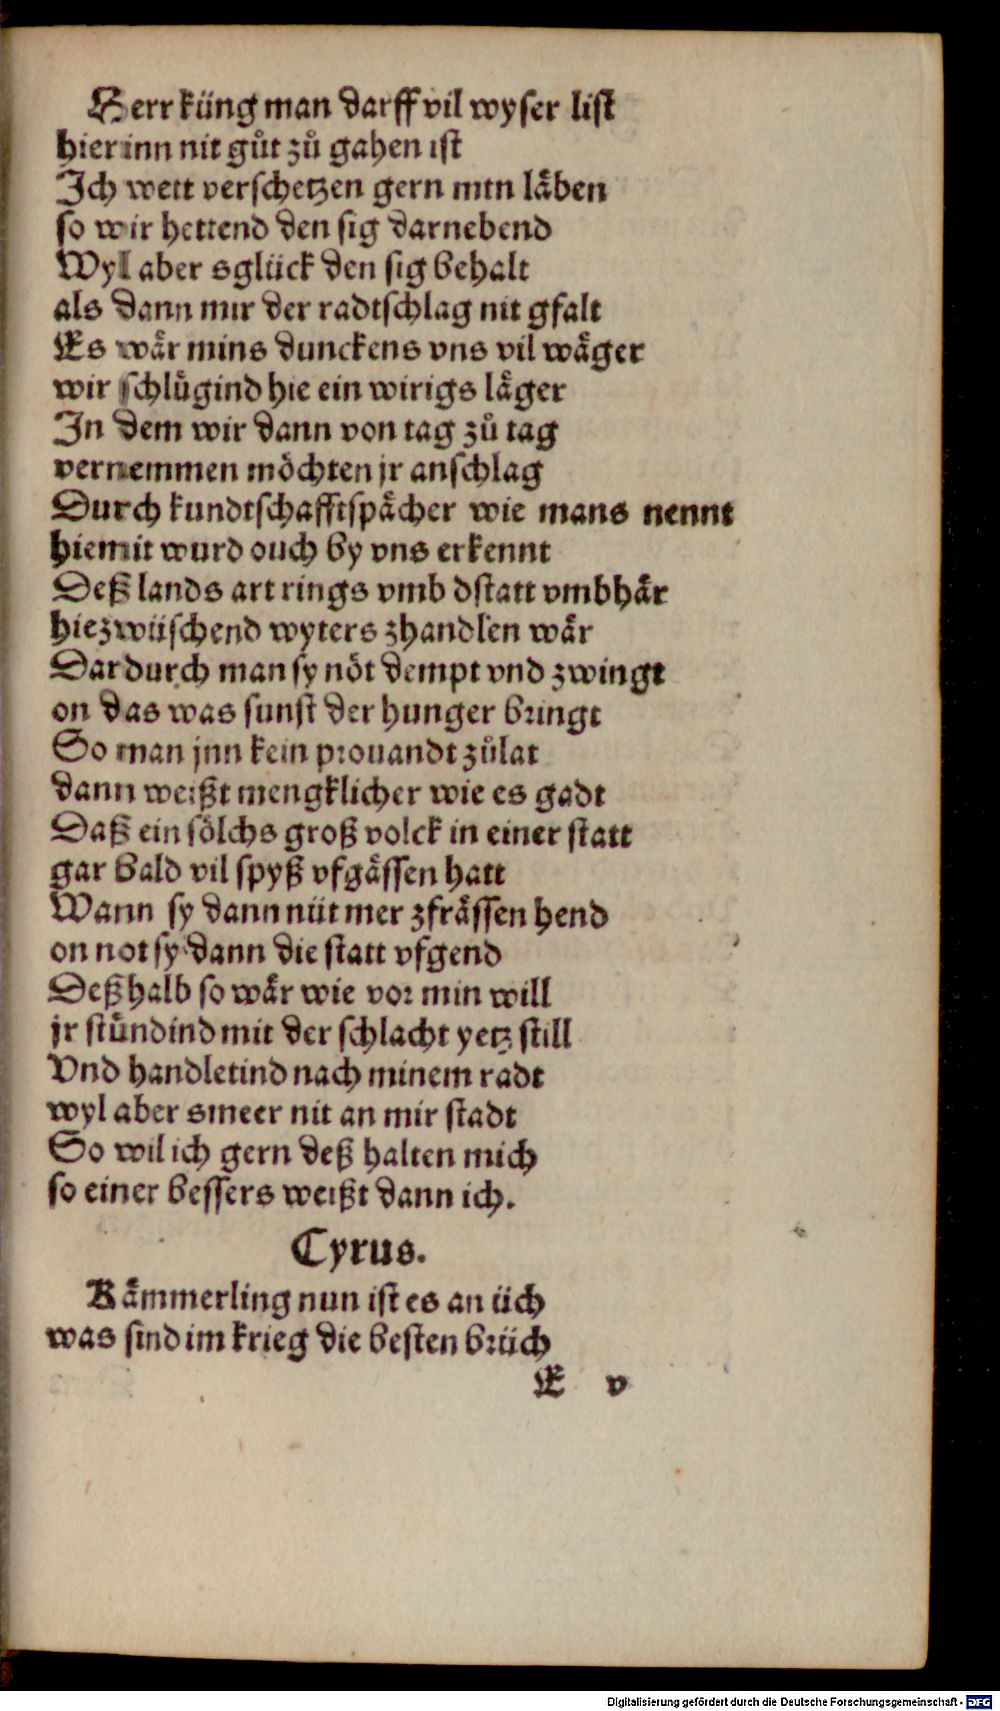 Herr küng man darff vil wyser list
hier inn nit gůt zů gahen ist
Ich wett verschetzen gern min läben
so wir hettend den sig darnebend
Wyl aber sglück den sig behalt
als dann mir der radtschlag nit gfalt
Es wär mins dunckens vns vil wäger
wir schlügind hie ein wirigs läger
In dem wir dann von tag zů tag
vernemmen möchten jr anschlag
Durch kundtschafftspächer wie mans nennt
hiemit wurd ouch by vns erkennt
Deß lands art rings vmb dstatt vmbhär
hiezwüschend wyters zhandlen wär
Dardurch man sy nöt dempt vnd zwingt
on das was sunst der hunger bringt
So man jnn kein prouandt zůlat
dann weißt mengklicher wie es gadt
Daß ein sölchs groß volck in einer statt
gar bald vil spyß vfgässen hatt
Wann sy dann nüt mer zfrässen hend
on not sy dann die statt vfgend
Deßhalb so wär wie vor min will
jr stündind mit der schlacht yetz still
Vnd handletind nach minem radt
wyl aber smeer nit an mir stadt
So wil ich gern deß halten mich
so einer bessers weißt dann ich.
Cyrus.
Kämmerling nun ist es an üch
was sind im krieg die besten brüch
E v
Digitalisierung gefördert durch die Deutsche Forschungsgemeinschaft - DFG